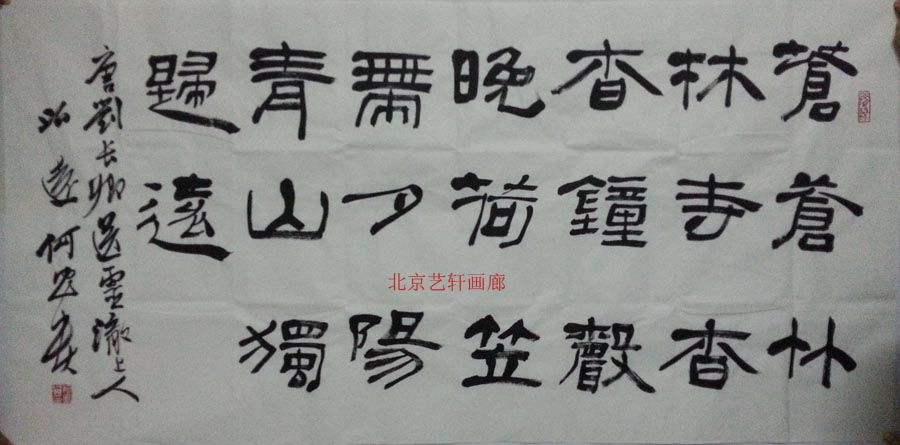 蒼蒼竹
林寺杳
杳鐘聲
晚荷笠
帶夕陽
青山獨
歸遠
唐劉長卿送靈澈上人
遠何
北京艺轩画廊